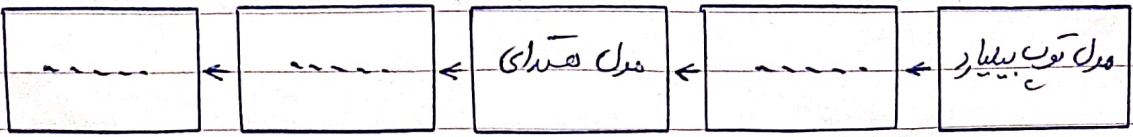 مدل توپ بیلیارد ← ..... ← مدل هسته‌ای ← ..... ← .....